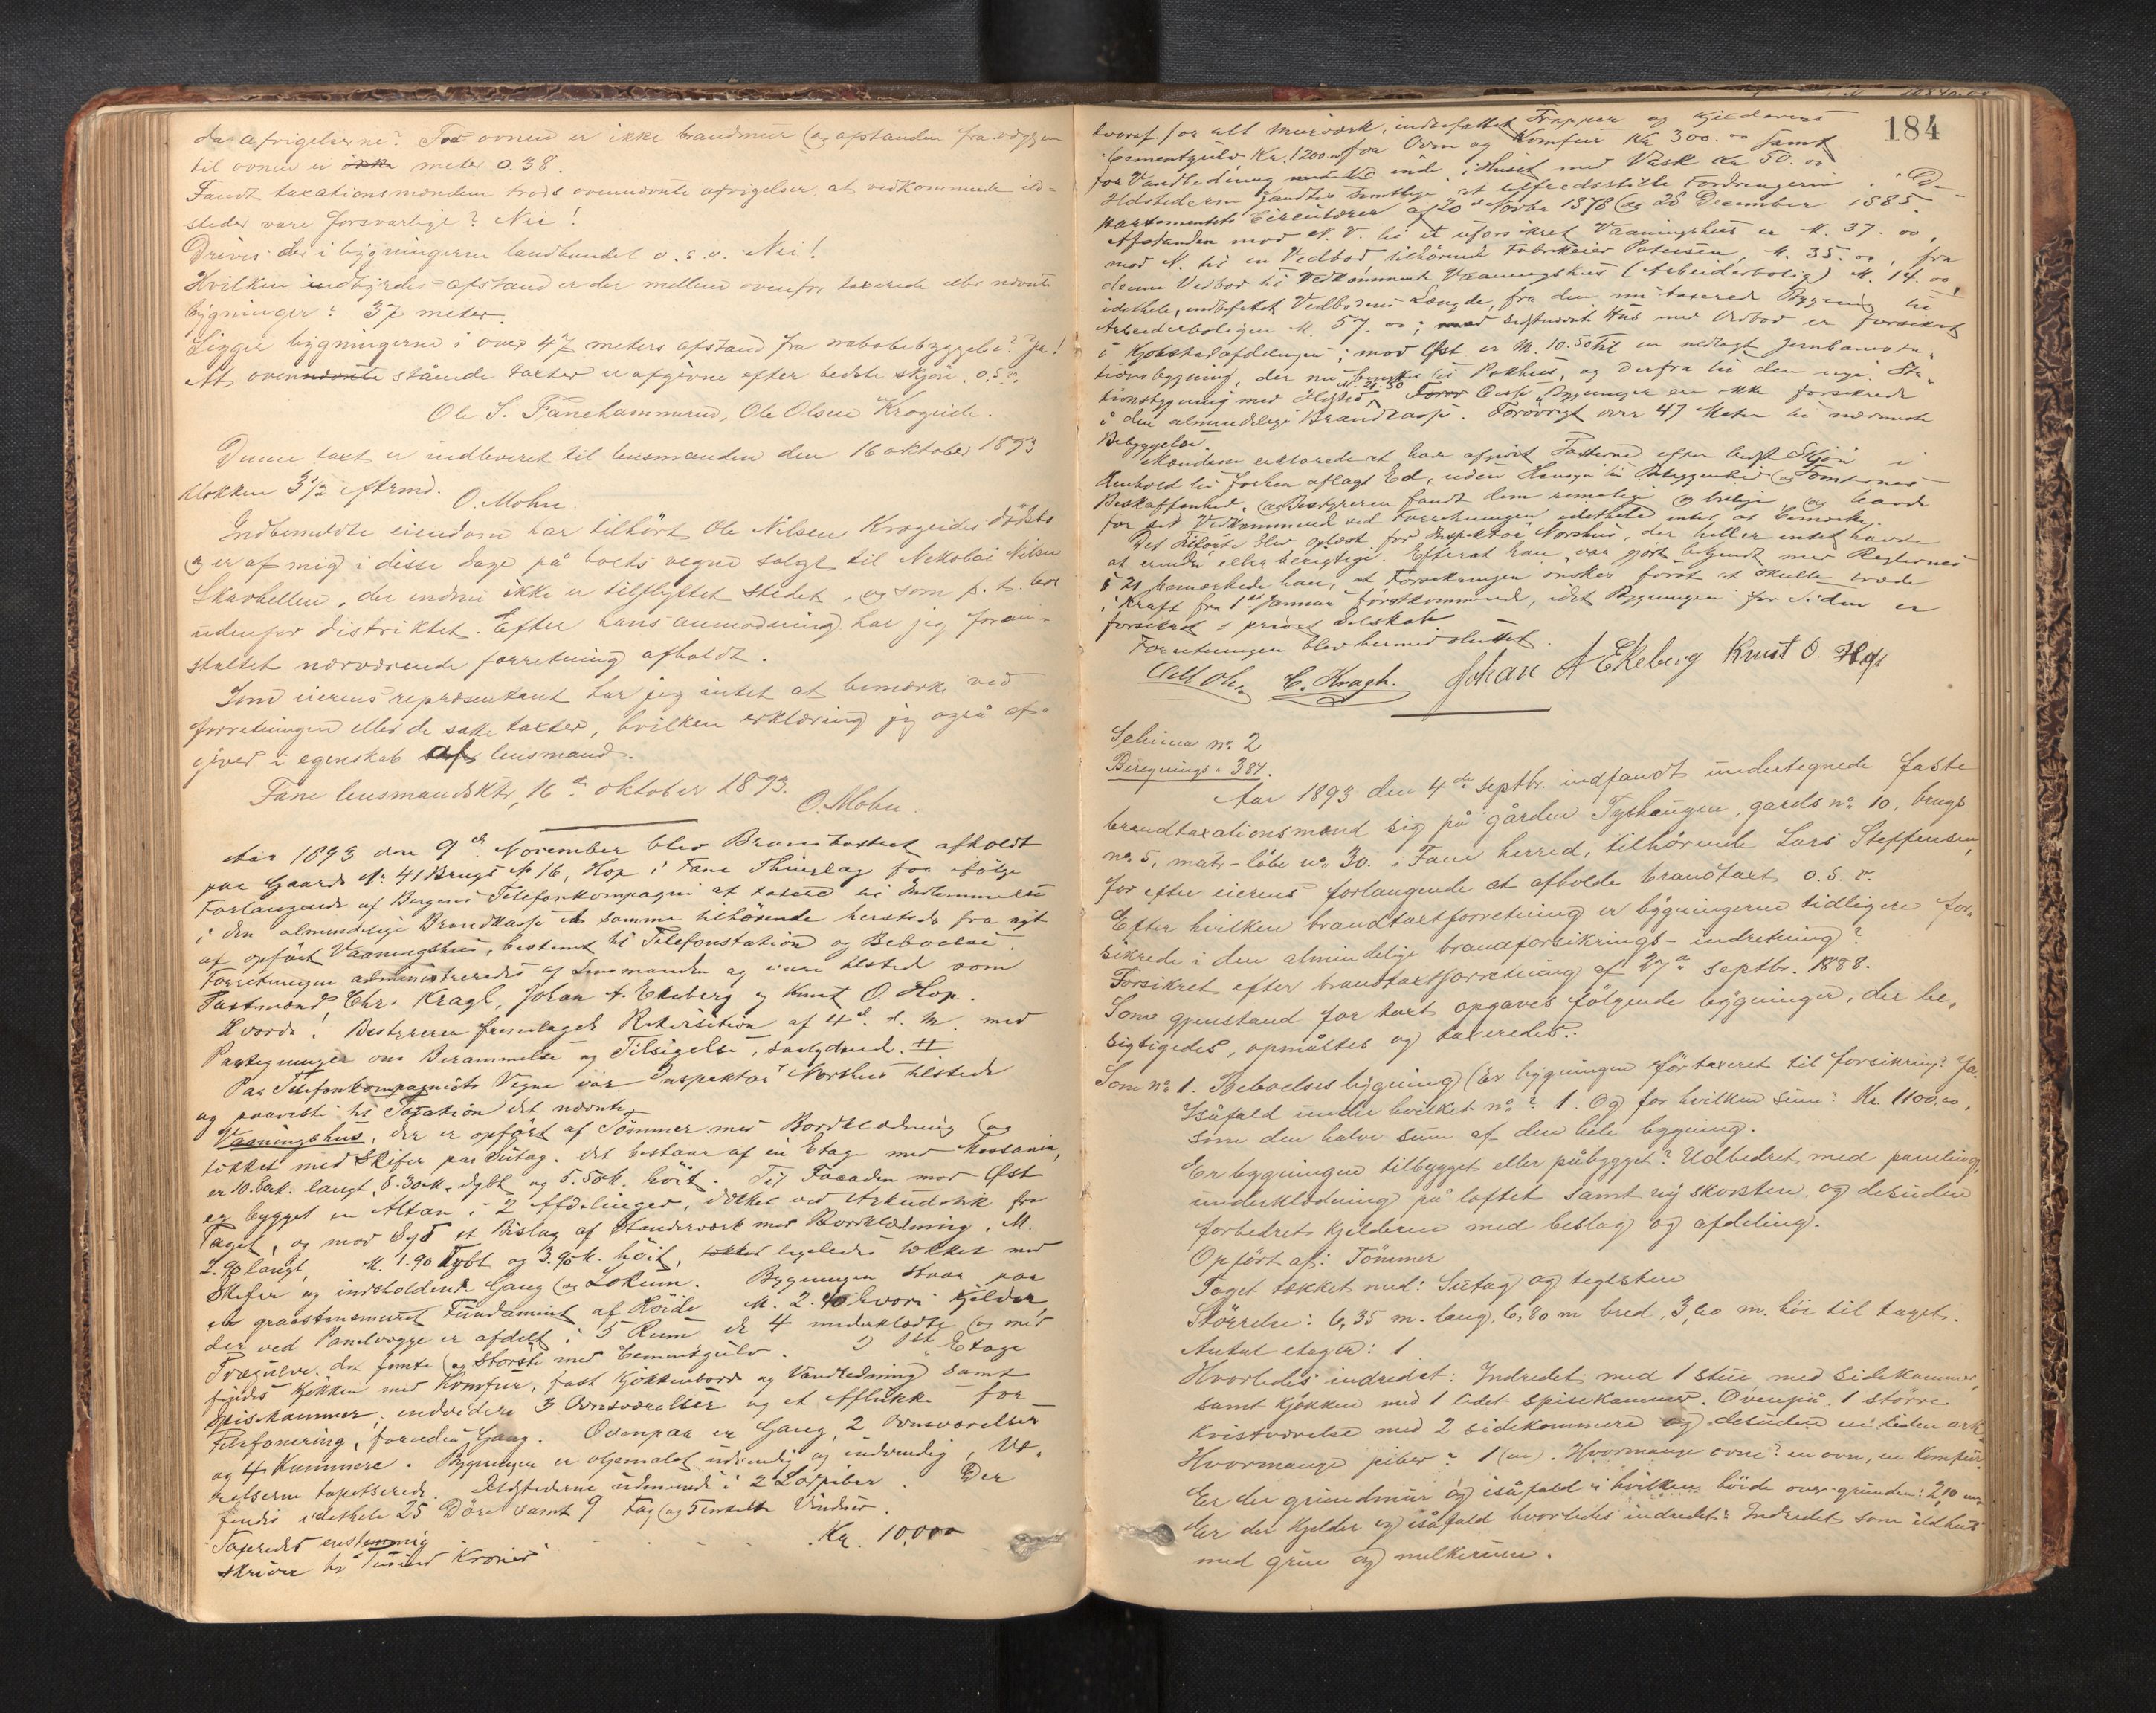 da afvigelserne? Ved ovnen er ikke brandmur og afstanden fra væggen
til ovnen er ikke meter 0.38.
Fandt taxationsmændene trods ovennævnte afvigelser at vedkommende ild-
steder vare forsvarlige? Nei!
Drives der i bygningerne landhandel o.s.v. Nei!
Hvilken indbyrdes afstand er der mellem ovenfor taxerede eller nævnte
bygninger? 37 meter.
Ligger bygningerne i over 47 meters afstand fra nabobebyggelse? Ja!
At ovennævnte stående taxter er afgivne efter bedste skjøn. o.s.v.
Ole S. Fanehammeren, Ole Olsen Krogeide.
Denne taxt er indleveret til lensmanden den 16 oktober 1893
klokken 3 1/2 eftermd.
O. Mohn.
Indbemeldte eiendom har tilhört Ole Nilsen Krogeides dödsbo
og er af mig i disse dage på boets vegne solgt til Nikolai Nilsen
Skarhellen, der endnu ikke er tilflyttet stedet, og som p. t. bor
udenfor distriktet. Efter hans anmodning har jeg foran-
staltet nærværende forretning afholdt.
Som eierens repræsentant har jeg intet at bemærke ved
forretningen eller de satte taxter, hvilken erklæring jeg også af-
giver i egenskab af lensmand.
Fane lensmandsktr, 16de oktober 1893.
O. Mohn.
Aar 1893 den 9de November blev Brandtaxt afholdt
paa Gaards No 41 Brugs No 16, Hop i Fane Thinglag foa ifölge
Forlangende af Bergens Telefonkompagni at taxere til Indlemmelse
i den almindelige Brandkasse et samme tilhörende hersteds fra nyt
af opfört Vaaningshus, bestemt til Telefonstation og Beboelse.
Forretningen administreredes af Lensmanden og vare tilsted som
Taxtmænd, Chr. Kragh, Johan A. Ekeberg og Knut O. Hop.
Hvorda! Bestyreren fremlagde Rekvisition af 4de d. M. med
Paategninger om Berammelse og Tilsigelse, saalydende. #
Paa Telefonkompagniets Vegne var Inspektör Norshus tilstede
og paaviste til Taxation det nævnte
Vaaningshus, der er opfört af Tömmer med Bordklædning og
tækket med Skifer paa Sutag. Det bestaar af en Etage med Mansarde,
er 10.80 M. langt, 8.30 M. dybt og 5.50 M. höit. Til Facaden mod Öst
er bygget en Altan i 2 Afdelinger, dækket ved Arkudstik fra
Taget, og mod Syd et Bislag af Standerværk med Bordklædning, M.
2.90 langt, M. 1.90 dybt og 3.90 M. höit, tækket ligeledes tækket med
Skifer og indeholdende Gang og Lokum. Bygningen staar paa
en graastensmuret Fundament af Höide M. 2.40 hvori Kjelder,
der ved Panelvægge er afdelt i 5 Rum de 4 underklædte og med
Trægulve, det femte og störste med Cementgulv. I 1ste Etage
findes Kjökken med Komfur, fast Kjökkenbord og Vandledning samt
Spisekammer, endvidere 3 Ovnsværelser og et Aflukke for
Telefonering, foruden Gang. Ovenpaa er Gang, 2 Ovnsværelser
og 4 Kammere. Bygningen er oljemalet udvendig og indvendig, Væ-
relserne tapetserede. Ildstederne udmunde i 2 Lodpiber. Der
findes idethele 25 Döre samt 9 Fag og Tenkelte Vinduer.
Taxeredes enstemmig . . . . . . Kr. 10,000
skriver ti Tusind Kroner
184
hvoraf for alt Murværk, indbefattet Trapper og Kjelderens
Cementgulv Kr. 1200.00 for Ovn og Komfur Kr 300.00 samt
for Vandledning inde i Huset med Vask Kr 50.00
Ildstederne fandtes samtlige at tilfredsstille Fordringerne i De-
partementets Circulærer af 20de Novbr 1878 og 28 December 1885.
Afstanden mod N. V. til et uforsikret Vaaningshus er M. 37.00,
mod N. til en Vedbod tilhörende Fabrikeier Petersen, M. 35.00, fra
denne Vedbod til Vedkommende Vaaningshus (Arbeiderbolig) M. 14.00,
idethele, indbefattet Vedbodens Længde, fra den nu taxerede Bygning til
Arbeiderboligen M. 57.00; sidstnævnte Hus med Vedbod er forsikret
i Kjøbstadafdelingen; mod Öst er M. 10.50 til en nedlagt Jernbanesta-
tionsbygning, der nu benyttes til Pakhus, og derfra til den nye Sta-
tionsbygning med Ildsted M. 28.50 Disse Bygninger ere ikke forsikrede
i den almindelige Brandkasse. Forövrigt over 47 Meter til nærmeste
Bebyggelse.
Mændene erklærede at have afgivet Taxterne efter bedste Skjön i
Henhold til forhen aflagt Ed, uden Hensyn til Beliggenhed og Tomternes
Beskaffenhed, og Bestyreren fandt dem rimelige og billige, og havde
for sit Vedkommende ved Forretningen idethele intet at bemærke.
Det Tilførte blev oplæst for Inspektør Norshus, der heller intet havde
at erindre eller berigtige. Efterat han var gjort bekjendt med Reglernes
§ 21 bemærkede han, at Forsikringen önskes först at skulle træde
i Kraft fra 1ste Januar förstkommende, idet Bygningen for Tiden er
forsikret i privat Selskab
Forretningen blev hermed sluttet.
O. Mohn. C. Kragh. Johan A Ekeberg Knut O. Hop
Schema no. 2
Beregnings- 384.
Aar 1893 den 4de septbr. indfandt undertegnede faste
brandtaxationsmænd sig på gården Tyshaugen, gards no. 10, brugs
no. 5, matr-löbe no. 30. i Fane herred, tilhörende Lars Steffensen,
for efter eierens forlangende at afholde brandtaxt o. s. v.
Efter hvilken brandtaxtforretning er bygningerne tidligere for-
sikrede i den almindelige brandforsikrings-indretning?
Forsikret efter brandtaxtforretning af 27de septbr. 1888.
Som gjenstand for taxt opgaves følgende bygninger, der be-
sigtigedes, opmåltes og taxeredes:
Som no. 1. Beboelsesbygning (Er bygningen för taxeret til forsikring? Ja.
Isåfald under hvilket no.? 1. Og for hvilken sum: Kr 1100,00,
som den halve sum af den hele bygning.
Er bygningen tilbygget eller påbygget? Udbedret med paneling,
underklædning på loftet samt ny skorsten, og desuden
forbedret kjelderne med beslag og afdeling.
Opfört af: Tömmer
Taget tækket med: Sutag og teglsten
Störrelse: 6,35 m. lang, 6,80 m bred, 3,60 m. höi til taget.
Antal etager: 1
Hvorledes indredet: Indredet med 1 stue med sidekammer,
samt kjökken med 1 lidet spisekammer. Ovenpå 1 större
kvistværelse med 2 sidekammere og desuden en liden ark.
Hvormange piber? 1 (en). Hvormange ovne? en ovn, en komfur.
Er der grundmur og isåfald i hvilken höide over grunden: 2,10 m.
Er der kjelder og isåfald hvorledes indredet: Indredet som ildhus
med grue og melkerum.